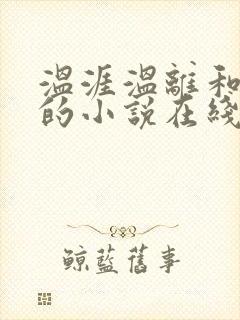 温涯温離和
的小说在綫
鲸蓝舊事